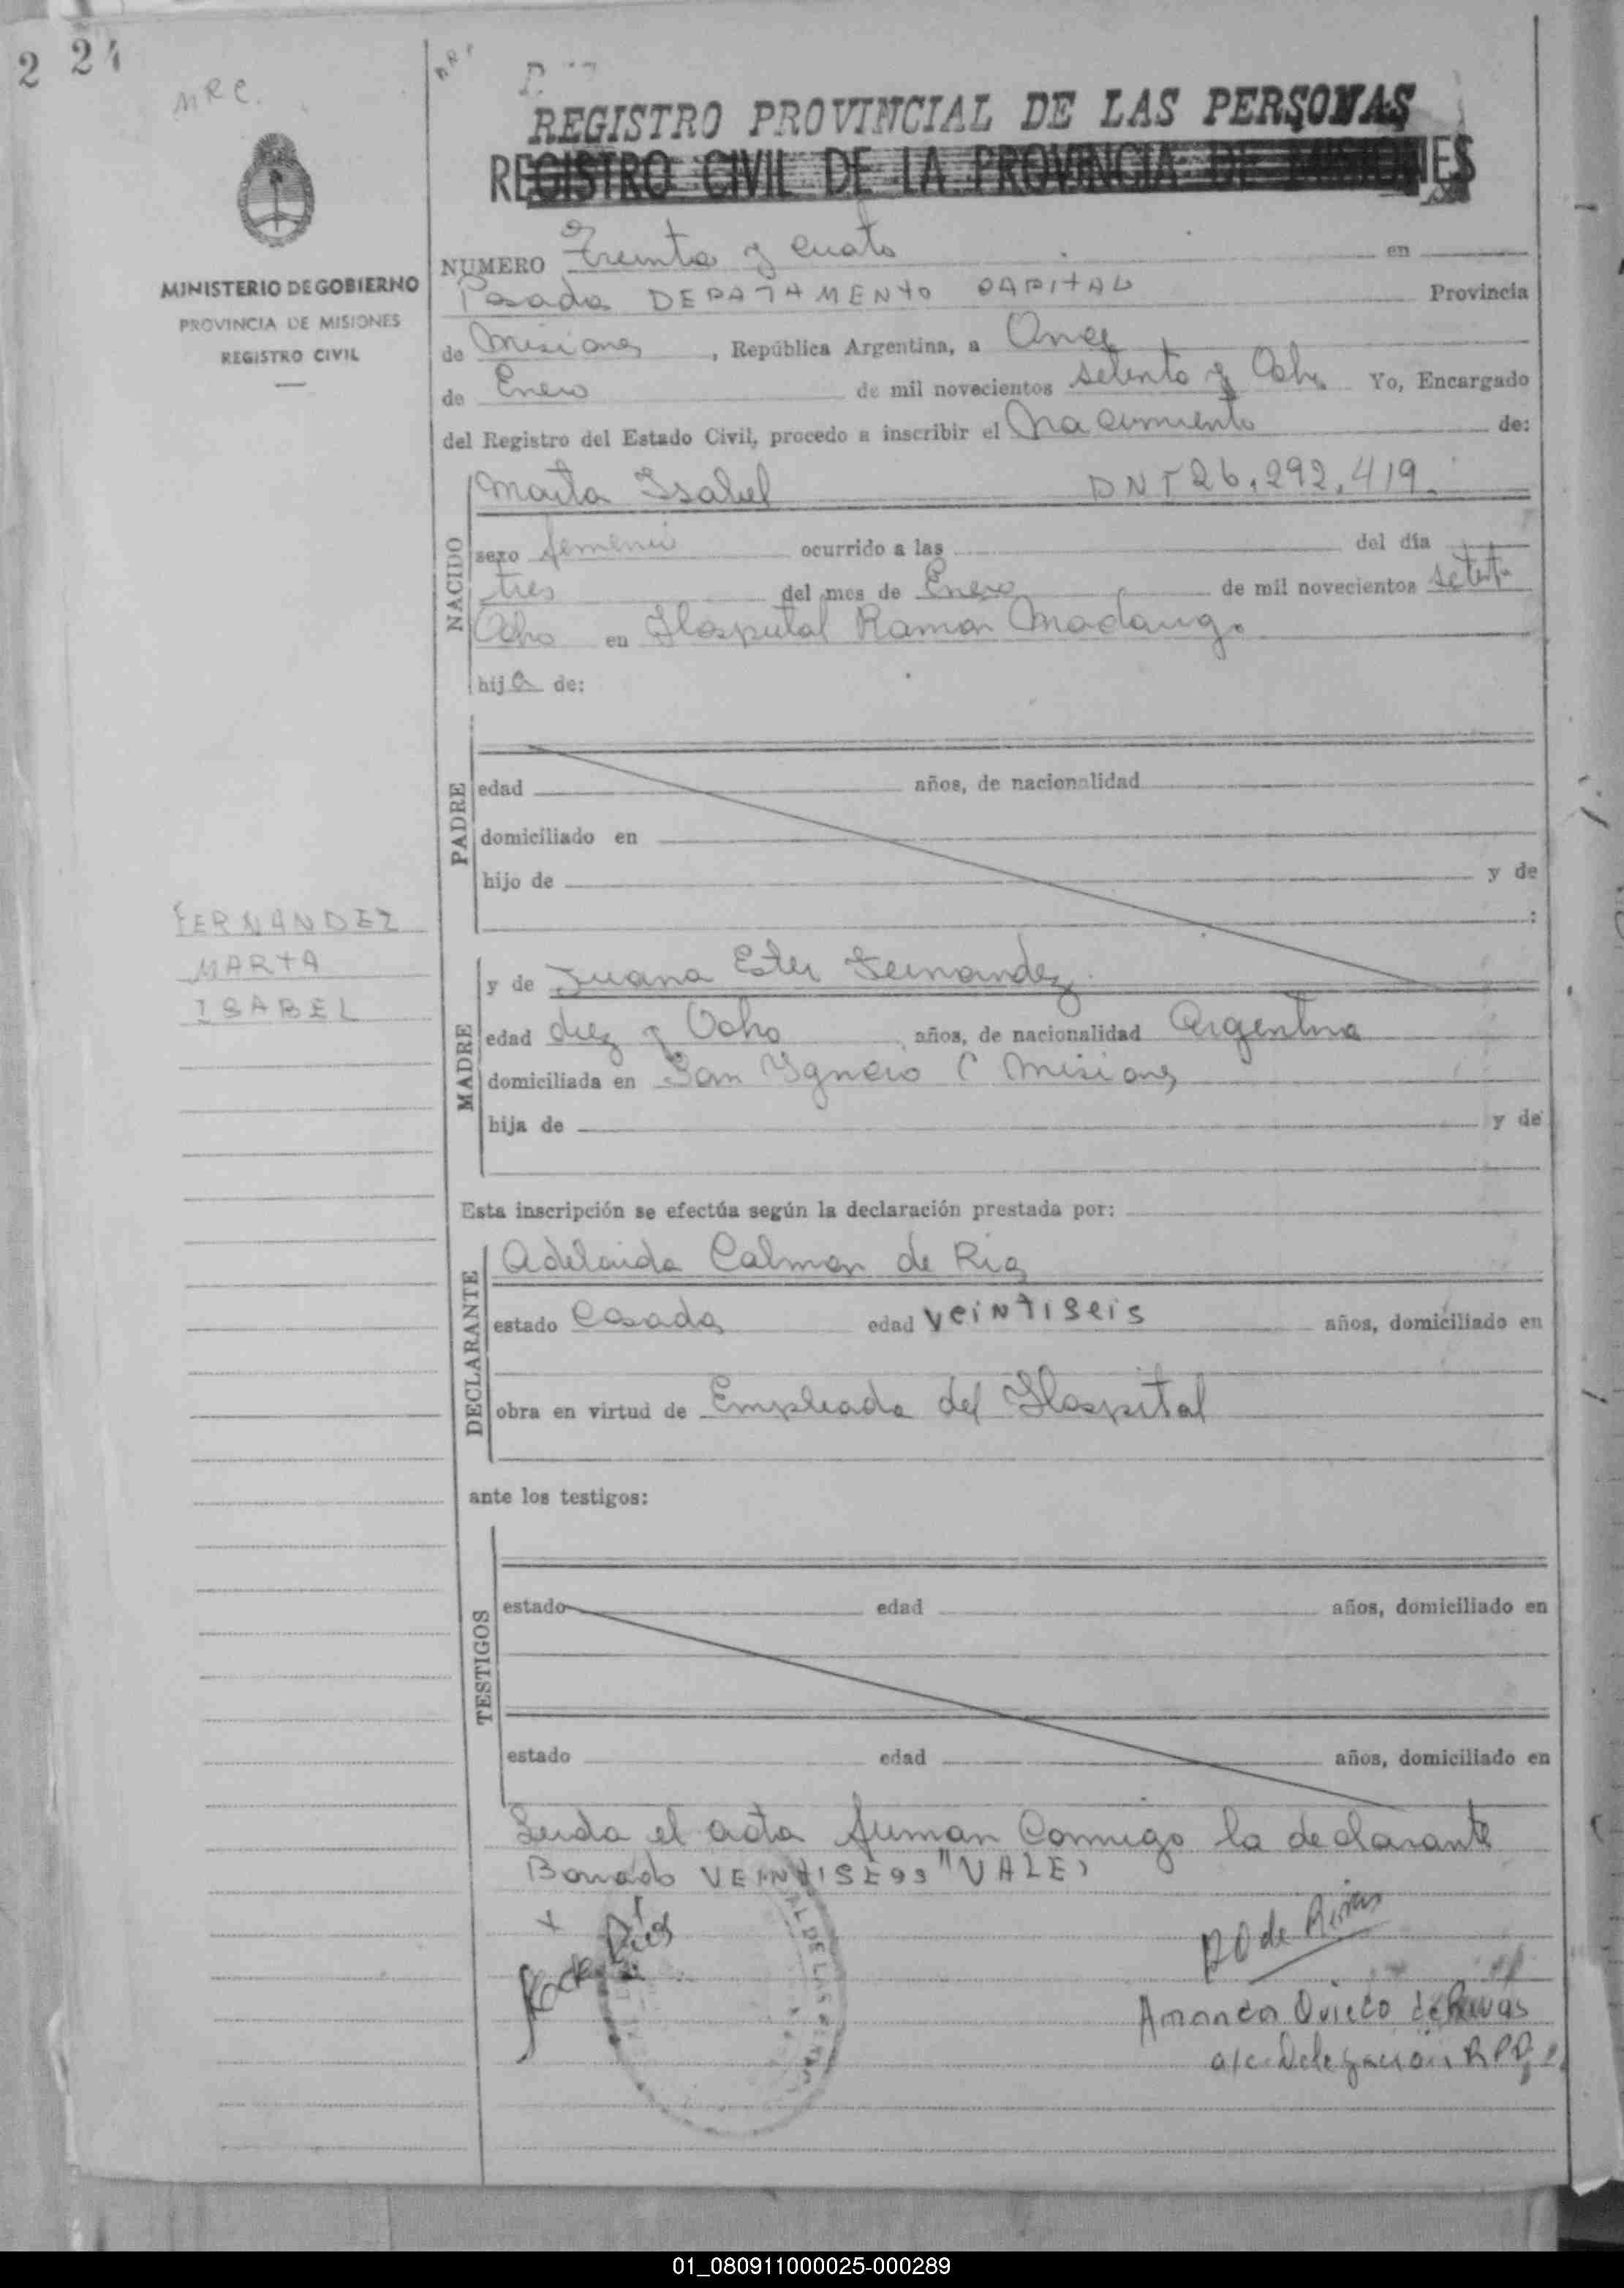 2 24
MRC.
REGISTRO PROVINCIAL DE LAS PERSONAS
REGISTRO CIVIL DE LA PROVINCIA DE MISIONES
MINISTERIO DE GOBIERNO
PROVINCIA DE MISIONES
REGISTRO CIVIL
NUMERO Treinta y cuatro en
Posadas DEPARTAMENTO CAPITAL Provincia
de Misiones, República Argentina, a Once
de Enero de mil novecientos setenta y Ocho Yo, Encargado
del Registro del Estado Civil, procedo a inscribir el Nacimiento de:
NACIDO
Marta Isabel DNI 26.292.419.
sexo femenino ocurrido a las del día
tres del mes de Enero de mil novecientos setenta
Ocho en Hospital Ramon Madariaga
hija de:
PADRE
edad años, de nacionalidad
domiciliado en
hijo de y de
:
FERNANDEZ
MARTA
ISABEL
MADRE
y de Juana Ester Fernandez
edad diez y Ocho años, de nacionalidad Argentina
domiciliada en San Ygnacio Misiones
hija de y de
Esta inscripción se efectúa según la declaración prestada por:
DECLARANTE
Adelaida Calmon de Rios
estado Casada edad VeiNtiseis años, domiciliado en
obra en virtud de Empleada del Hospital
ante los testigos:
TESTIGOS
estado edad años, domiciliado en
estado edad años, domiciliado en
Leida el acta firman Conmigo la declarante
Borrado VEINTISEIS "VALE"
de Rios
DO de Rivas
Amanda Oviedo de Rivas
a/c. Delegación RPP
01_080911000025-000289